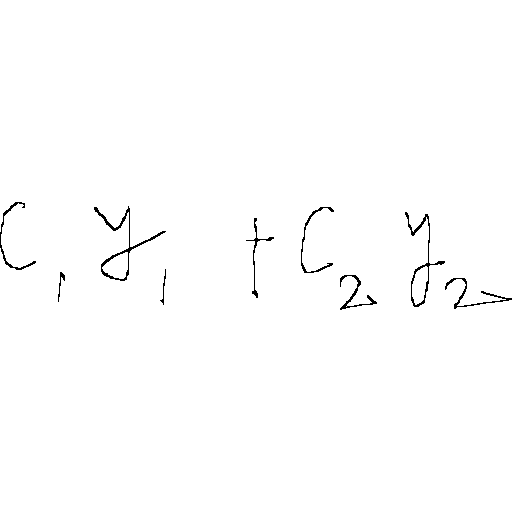 C₁ y₁ + C₂ y₂